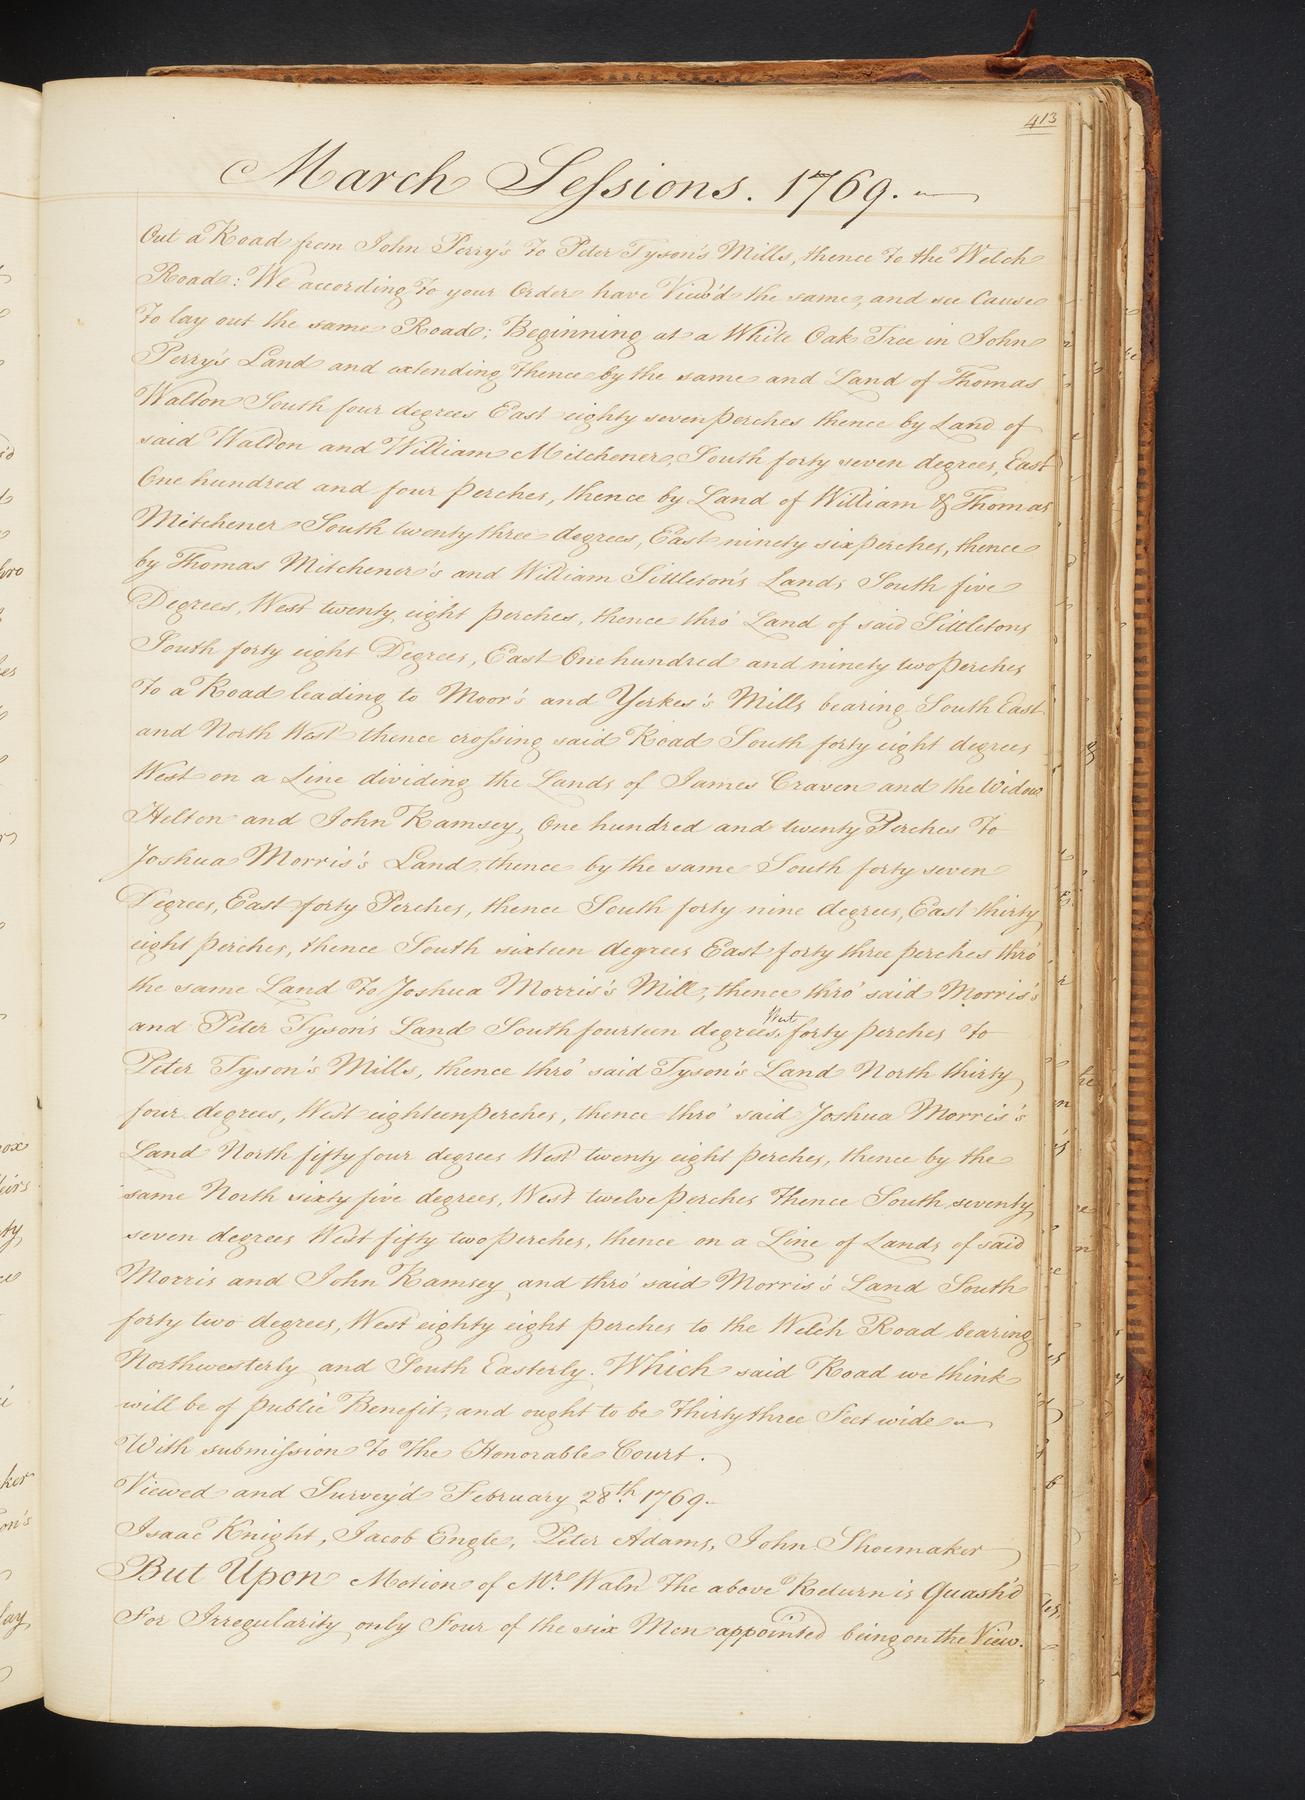 413
March Sessions. 1769.
Out a Road from John Perry's to Peter Tyson's Mills, thence to the Welch
Road: We according to your Order have View'd the same, and see Cause
to lay out the same Road; Beginning at a White Oak Tree in John
Perry's Land and extending thence by the same and Land of Thomas
Walton South four degrees East eighty seven perches thence by Land of
said Walton and William Mitchener, South forty seven degrees, East
One hundred and four perches, thence by Land of William & Thomas
Mitchener South twenty three degrees, East ninety six perches, thence
by Thomas Mitchener's and William Sittleton's Lands South five
Degrees, West twenty eight perches, thence thro' Land of said Sittletons
South forty eight Degrees, East One hundred and ninety two perches
to a Road leading to Moor's and Yerkes's Mills bearing South East
and North West thence crossing said Road South forty eight degrees
West on a Line dividing the Lands of James Craven and the Widow
Helton and John Ramsey, One hundred and twenty Perches to
Joshua Morris's Land thence by the same South forty seven
Degrees, East forty Perches, thence South forty nine degrees, East thirty
eight perches, thence South sixteen degrees East forty three perches thro'
the same Land to Joshua Morris's Mill, thence thro' said Morris's
and Peter Tyson's Land South fourteen degrees, West forty perches to
Peter Tyson's Mills, thence thro' said Tyson's Land North thirty
four degrees, West eighteen perches, thence thro' said Joshua Morris's
Land North fifty four degrees West twenty eight perches, thence by the
same North sixty five degrees, West twelve perches thence South seventy
seven degrees West fifty two perches, thence on a Line of Lands of said
Morris and John Ramsey and thro' said Morris's Land South
forty two degrees, West eighty eight perches to the Welch Road bearing
Northwesterly and South Easterly. Which said Road we think
will be of public Benefit, and ought to be thirty three Feet wide
With submission to the Honorable Court.
Viewed and Survey'd February 28th. 1769
Isaac Knight, Jacob Engle, Peter Adams, John Shoemaker
But Upon Motion of Mr. Waln the above Return is Quash'd
For Irregularity only Four of the six Men appointed being on the View.